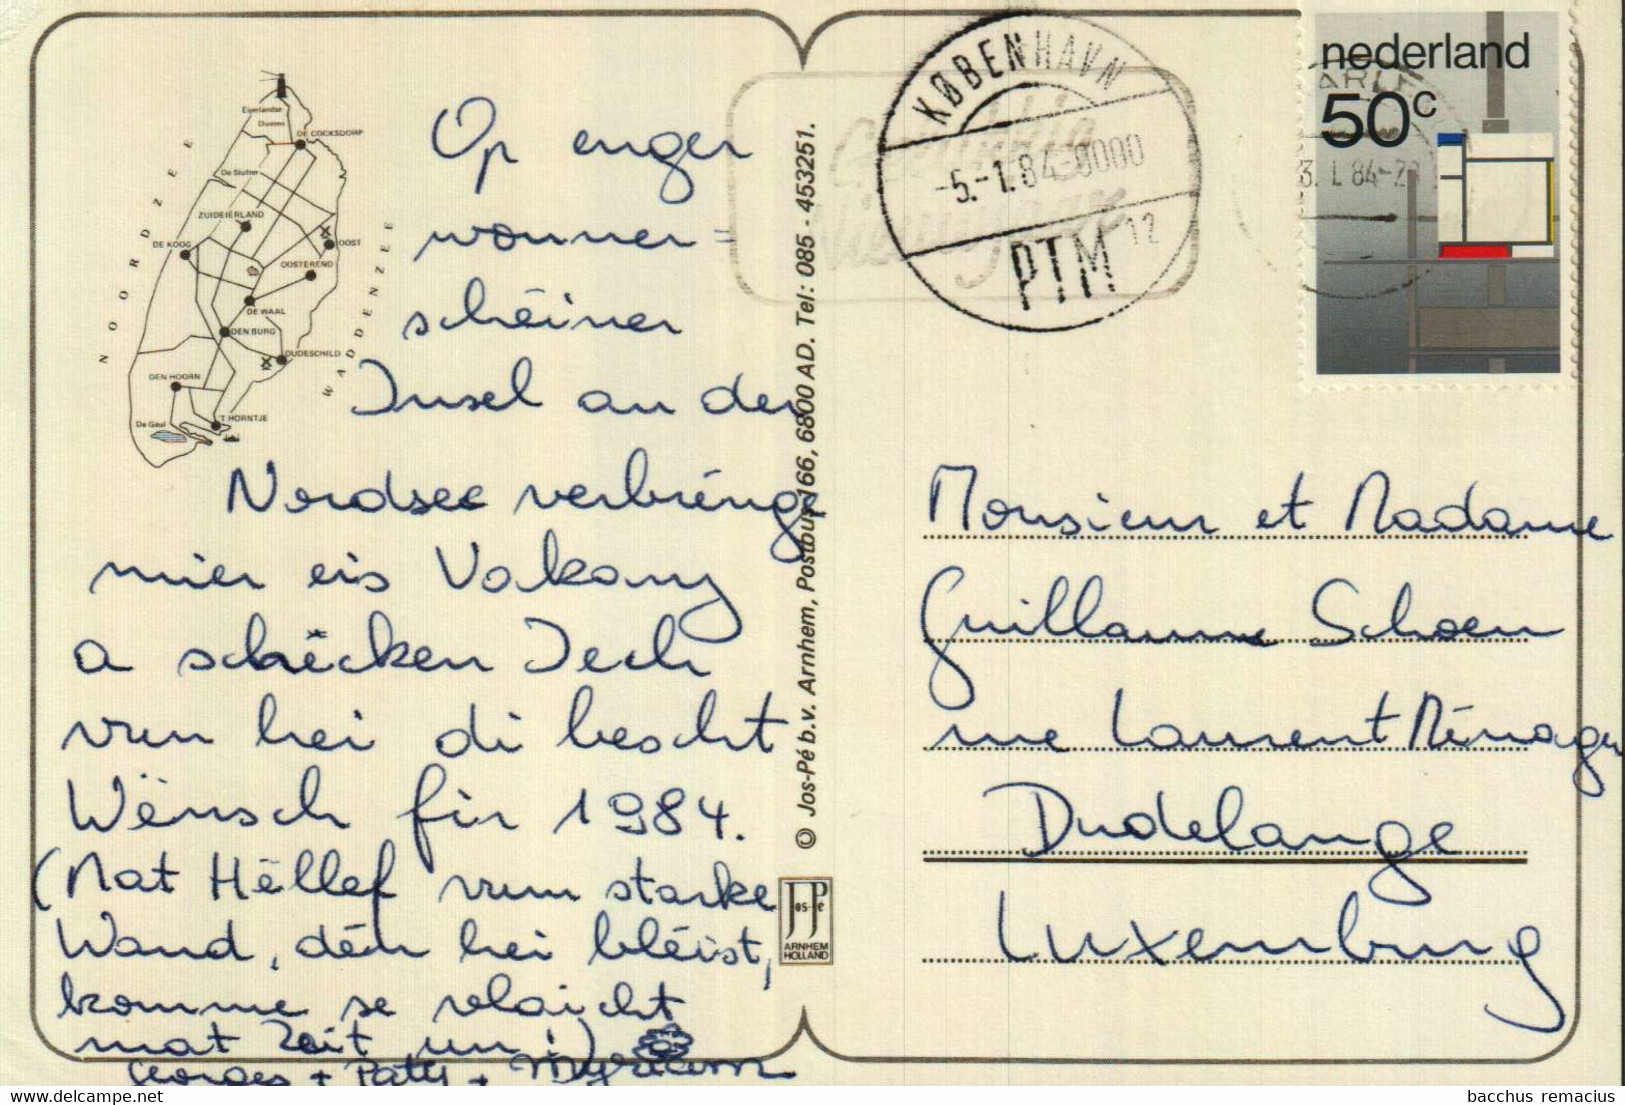 Op enger
wonner=
schéiner
Insel an der
Nordsee verbréngen
mier eis Vakanz
a schécken Iech
vun hei di bescht
Wënsch fir 1984.
(Mat Hëllef vum starke
Wand, déen hei bléist,
komme se vläicht
mat Zäit un!)
Georges + Patty + Myriam
NOORDZEE
WADDENZEE
Eijerlandse
Duinen
DE COCKSDORP
De Slufter
ZUIDEIERLAND
DE KOOG
OOST
OOSTEREND
DE WAAL
DEN BURG
OUDESCHILD
DEN HOORN
'T HORNTJE
De Geul
© Jos-Pé b.v. Arnhem, Postbus 166, 6800 AD. Tel: 085 - 453251.
Jos-Pé
ARNHEM
HOLLAND
KØBENHAVN
-5.-1.84-0000
PTM 12
Gelukkig
Nieuwjaar
nederland
50c
3. I. 84-20
Monsieur et Madame
Guillaume Schoen
rue Laurent Ménager
Dudelange
Luxemburg
bacchus remacius